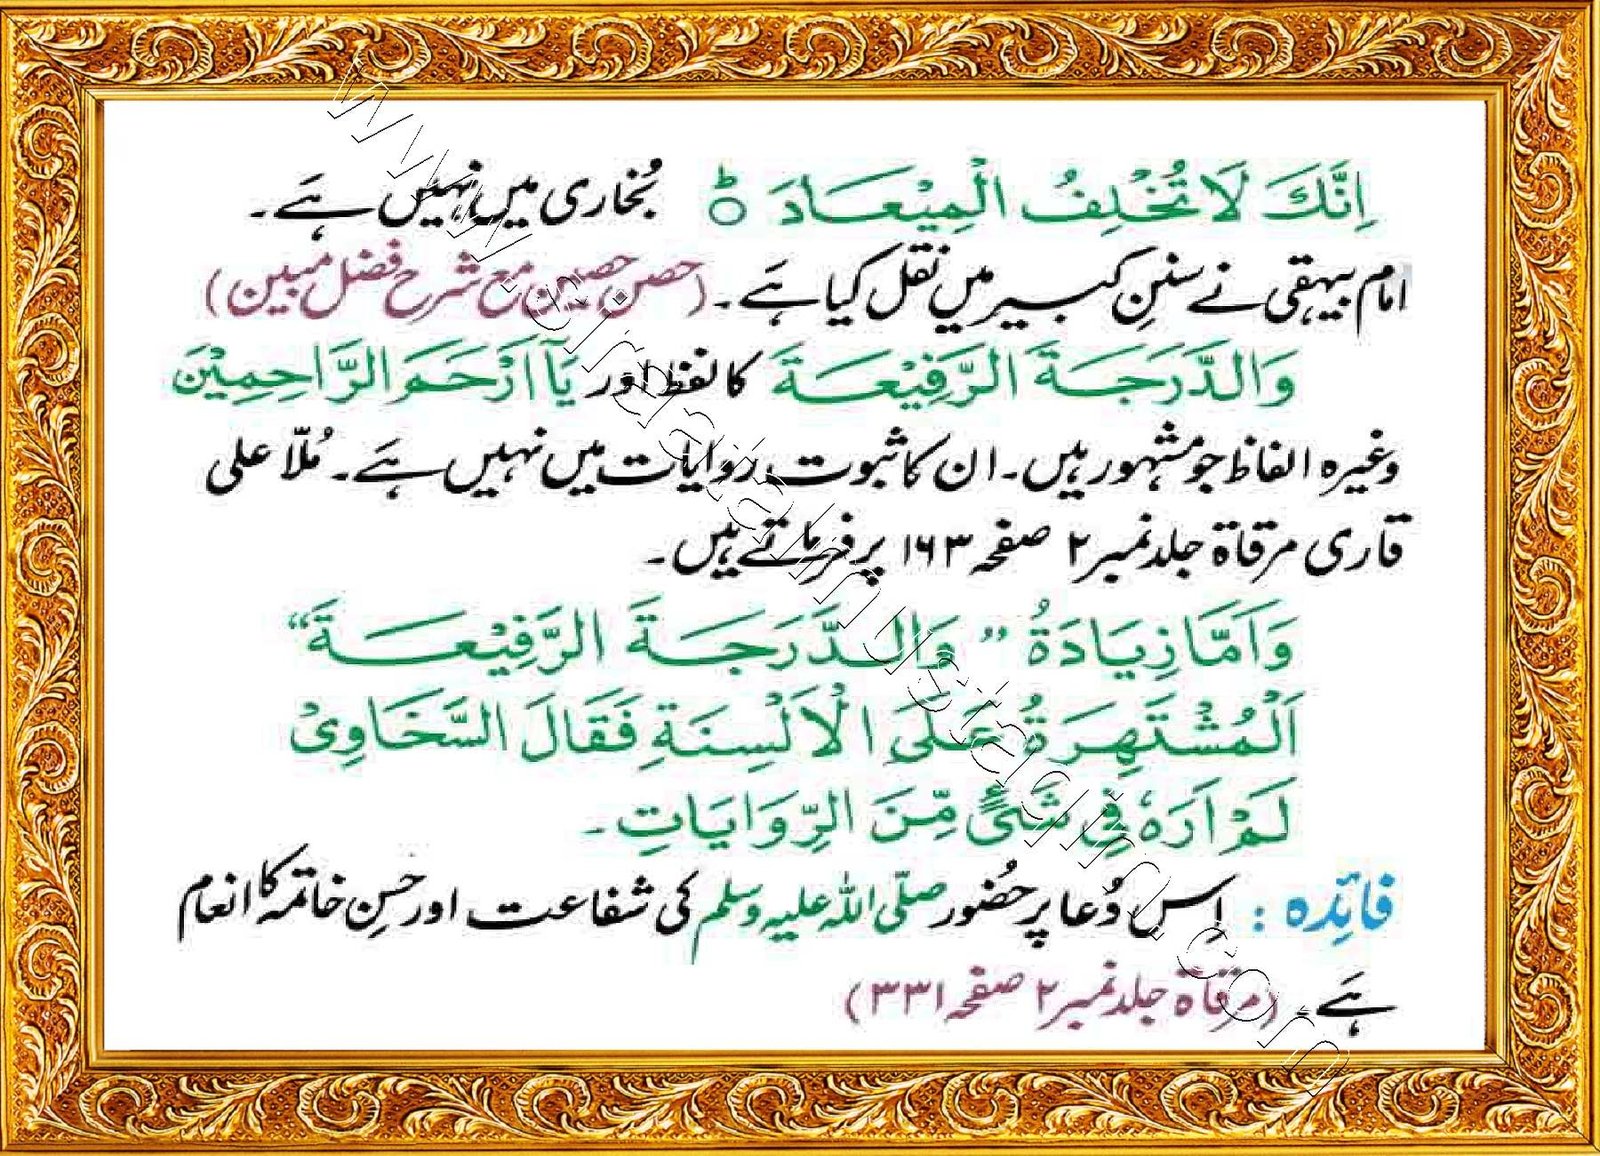 اِنَّكَ لَا تُخْلِفُ الْمِيْعَادَ ۃؕ بُخاری میں نہیں ہَے۔
امام بیہقی نے سننِ کبیر میں نقل کیا ہَے۔ (حصن حصین مع شرح فضل مبین)
وَالدَّرَجَةَ الرَّفِيْعَةَ کا لفظ اور يَآ اَرْحَمَ الرَّاحِمِيْنَ
وغیرہ الفاظ جو مشہور ہیں۔ ان کا ثبوت روایات میں نہیں ہَے۔ مُلّا علی
قاری مرقاۃ جلد نمبر ۲ صفحہ ۱۶۳ پر فرماتے ہیں۔
وَاَمَّا زِيَادَةُ ”وَالدَّرَجَةَ الرَّفِيْعَةَ“
اَلْمُشْتَهِرَةُ عَلَى الْاَلْسِنَةِ فَقَالَ السَّخَاوِىْ
لَمْ اَرَهٗ فِىْ شَىْءٍ مِّنَ الرِّوَايَاتِ۔
فائِدہ : اِس دُعا پر حضُور صلّی اللہ علیہ وسلم کی شفاعت اور حُسنِ خاتمہ کا انعام
ہَے۔ (مرقاۃ جلد نمبر ۲ صفحہ ۳۳۱)
www.siratalmustaqim.com